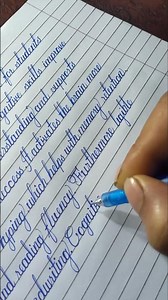 for students
cognitive skills improve
understanding and supports
success. It activates the brain more
typing which helps with memory retention
and reading fluency. Furthermore, gentle
handwriting Cognit